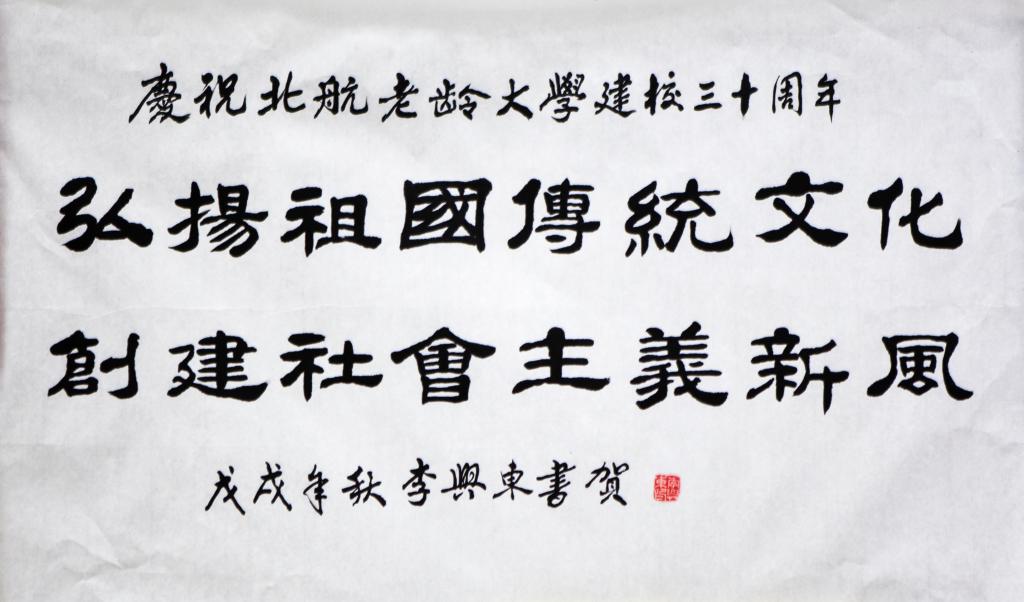 慶祝北航老龄大學建校三十周年
弘揚祖國傳統文化
創建社會主義新風
戊戌年秋李興東書賀